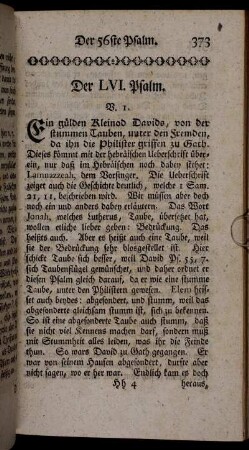 Der 56ste Psalm. 373
Der LVI. Psalm.
V. 1.
Ein gülden Kleinod Davids, von der
stummen Tauben, unter den Fremden,
da ihn die Philister griffen zu Gath.
Dieses kömmt mit der hebräischen Ueberschrift über-
ein, nur daß im Hebräischen noch dabey stehet:
Lamnazzeah, dem Vorsinger. Die Ueberschrift
zeiget auch die Geschichte deutlich, welche 1 Sam.
21, 11, beschrieben wird. Wir müssen aber doch
noch ein und anders dabey erläutern. Das Wort
Jonah, welches Lutherus, Taube, übersetzet hat,
wollen etliche lieber geben: Bedrückung. Das
heißts auch. Aber es heißt auch eine Taube, weil
sie der Bedrückung sehr blosgestellet ist. Hier
schickt Taube sich besser, weil David Ps. 55, 7.
sich Taubenflügel gewünschet, und daher ordnet er
diesen Psalm gleich darauf, da er wie eine stumme
Taube, unter den Philistern gewesen. Elem heis-
set auch beydes: abgesondert, und stumm, weil das
abgesonderte gleichsam stumm ist, sich zu bekennen.
So ist eine abgesonderte Taube auch stumm, daß
sie nicht viel Kennens machen darf, sondern muß
mit Stummheit alles leiden, was ihr die Feinde
thun. So wars David zu Gath gegangen. Er
war von seinem Hausen abgesondert, durfte aber
nicht sagen, wo er her war. Endlich kam es doch
Hh 4 heraus,